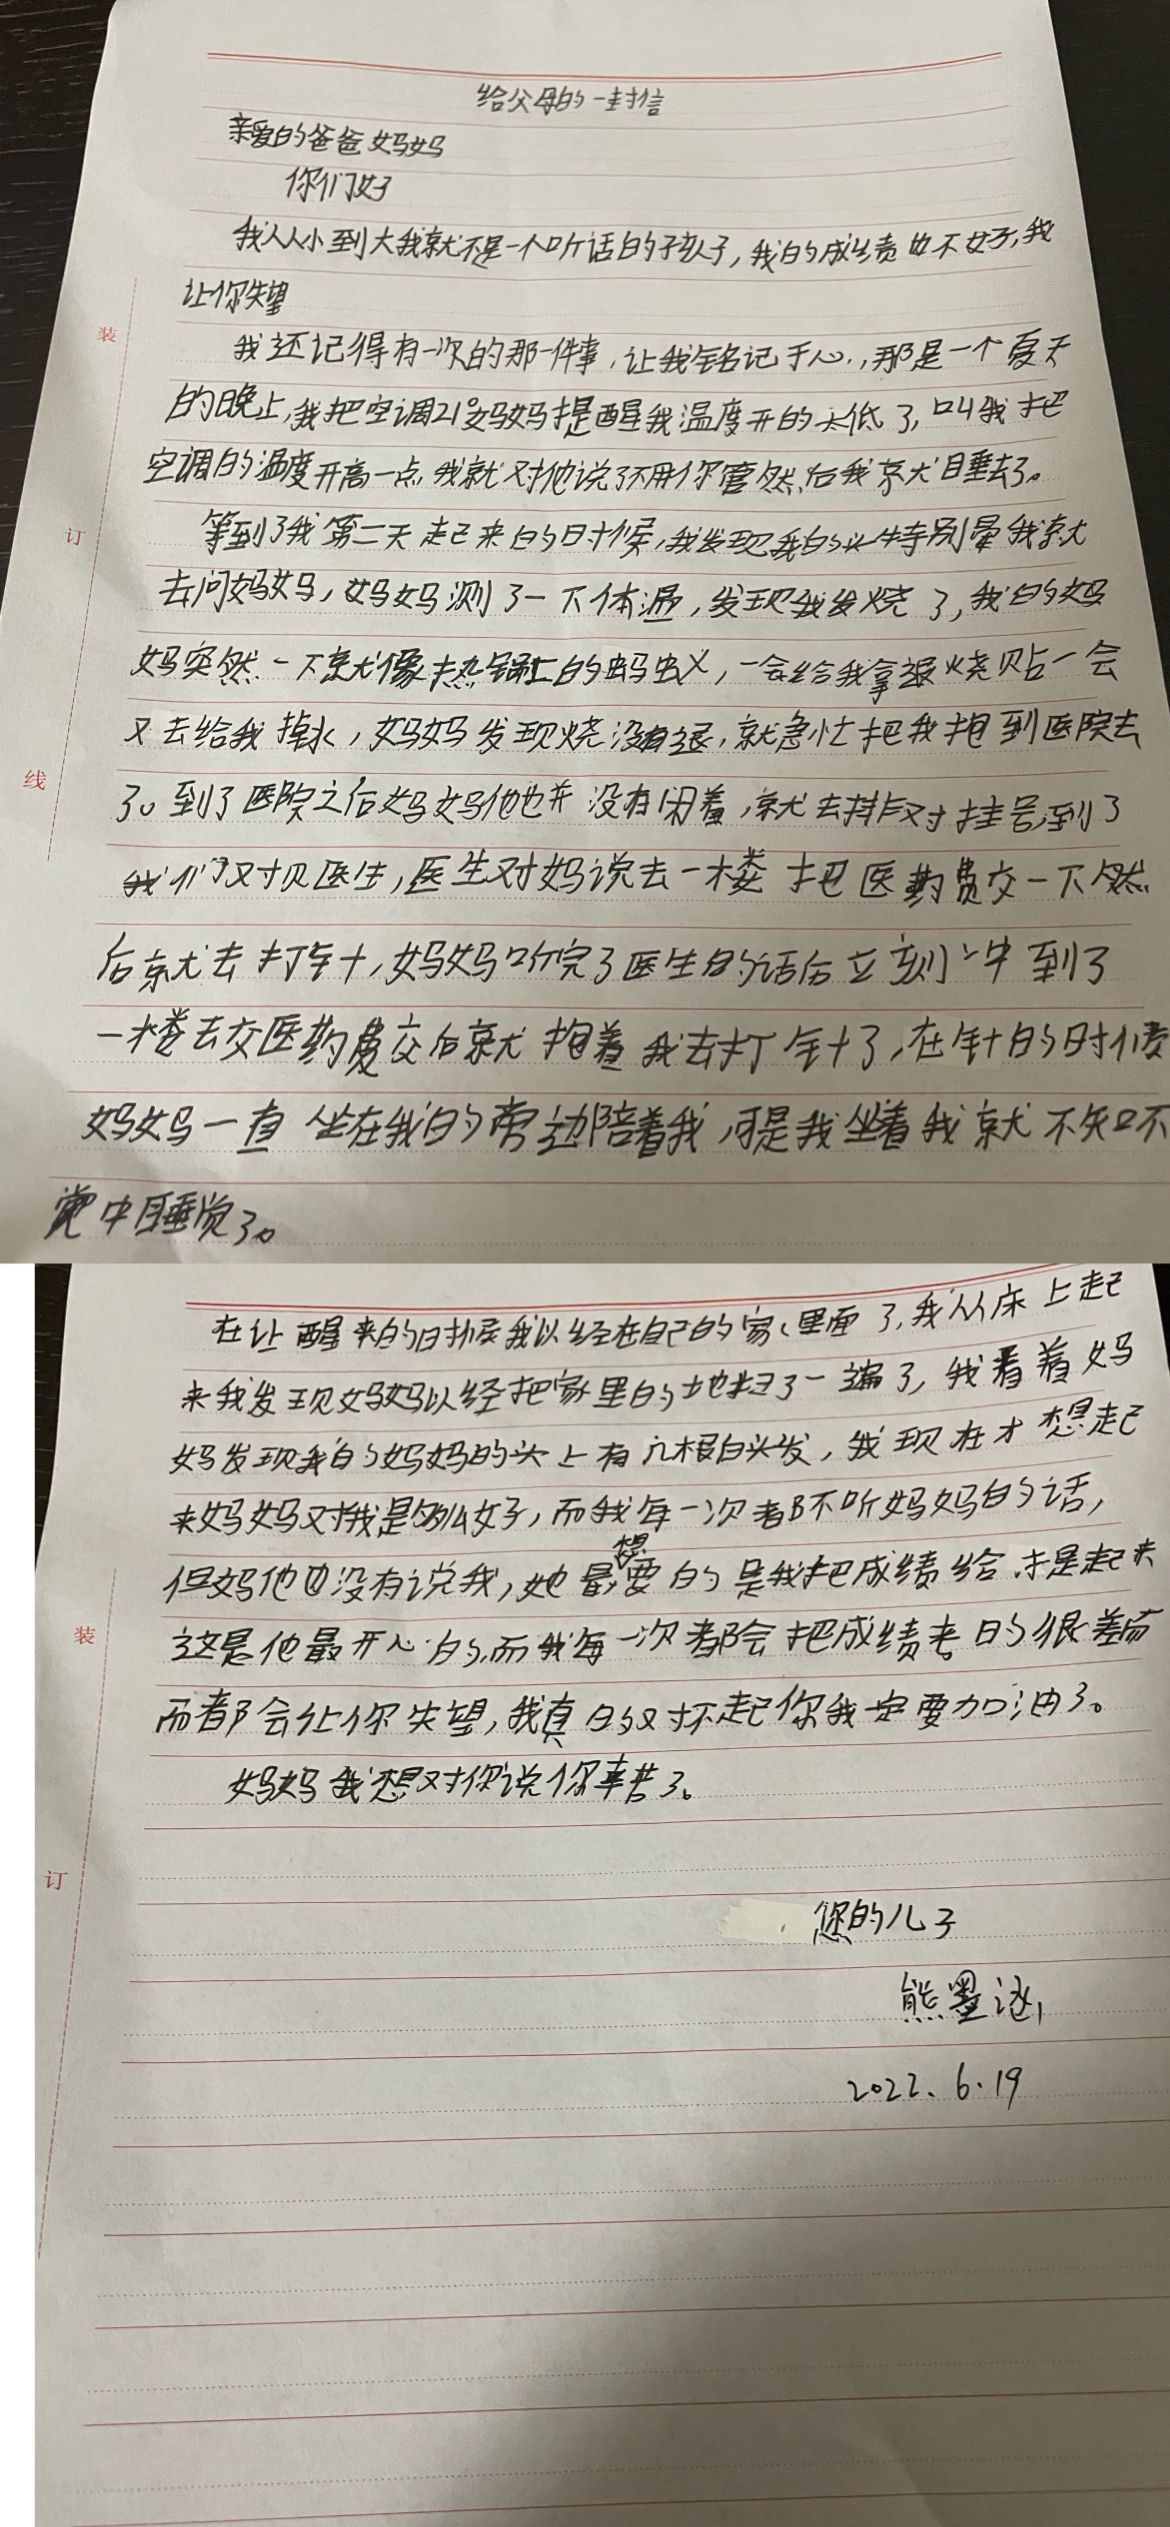 给父母的一封信
亲爱的爸爸妈妈
你们好
我从小到大我就不是一个听话的孩子，我的成绩也不好，我
让你失望
我还记得有一次的那一件事，让我铭记于心，那是一个夏天
的晚上，我把空调21°妈妈提醒我温度开的太低了，叫我把
空调的温度开高一点，我就对他说了不用你管然后我就睡去了。
等到了我第二天起来的时候，我发现我的头特别晕我就
去问妈妈，妈妈测了一下体温，发现我发烧了，我的妈
妈突然一下就像热锅上的蚂蚁，一会给我拿退烧贴一会
又去给我掉水，妈妈发现烧没有退，就急忙把我抱到医院去
了。到了医院之后妈妈他也并没有闲着，就去排对挂号，到了
我们对贝医生，医生对妈说去一楼把医药费交一下然
后就去打针，妈妈听完了医生的话后立刻冲到了
一楼去交医药费交后就抱着我去打针了，在针的时候
妈妈一直坐在我的旁边陪着我，可是我坐着我就不知不
觉中睡觉了。
在让醒来的时候我以经在自己的家里面了，我从床上起
来我发现妈妈以经把家里的地扫了一遍了，我看着妈
妈发现我的妈妈的头上有几根白头发，我现在才想起
来妈妈对我是多么好，而我每一次都不听妈妈的话，
但妈他也没有说我，她最想要的是我把成绩给提起来
这是他最开心的，而我每一次都会把成绩考的很差而
而都会让你失望，我真的对不起你我一定要加油了。
妈妈我想对你说你辛苦了。
您的儿子
熊墨涵
2022.6.19
装
订
线
装
订